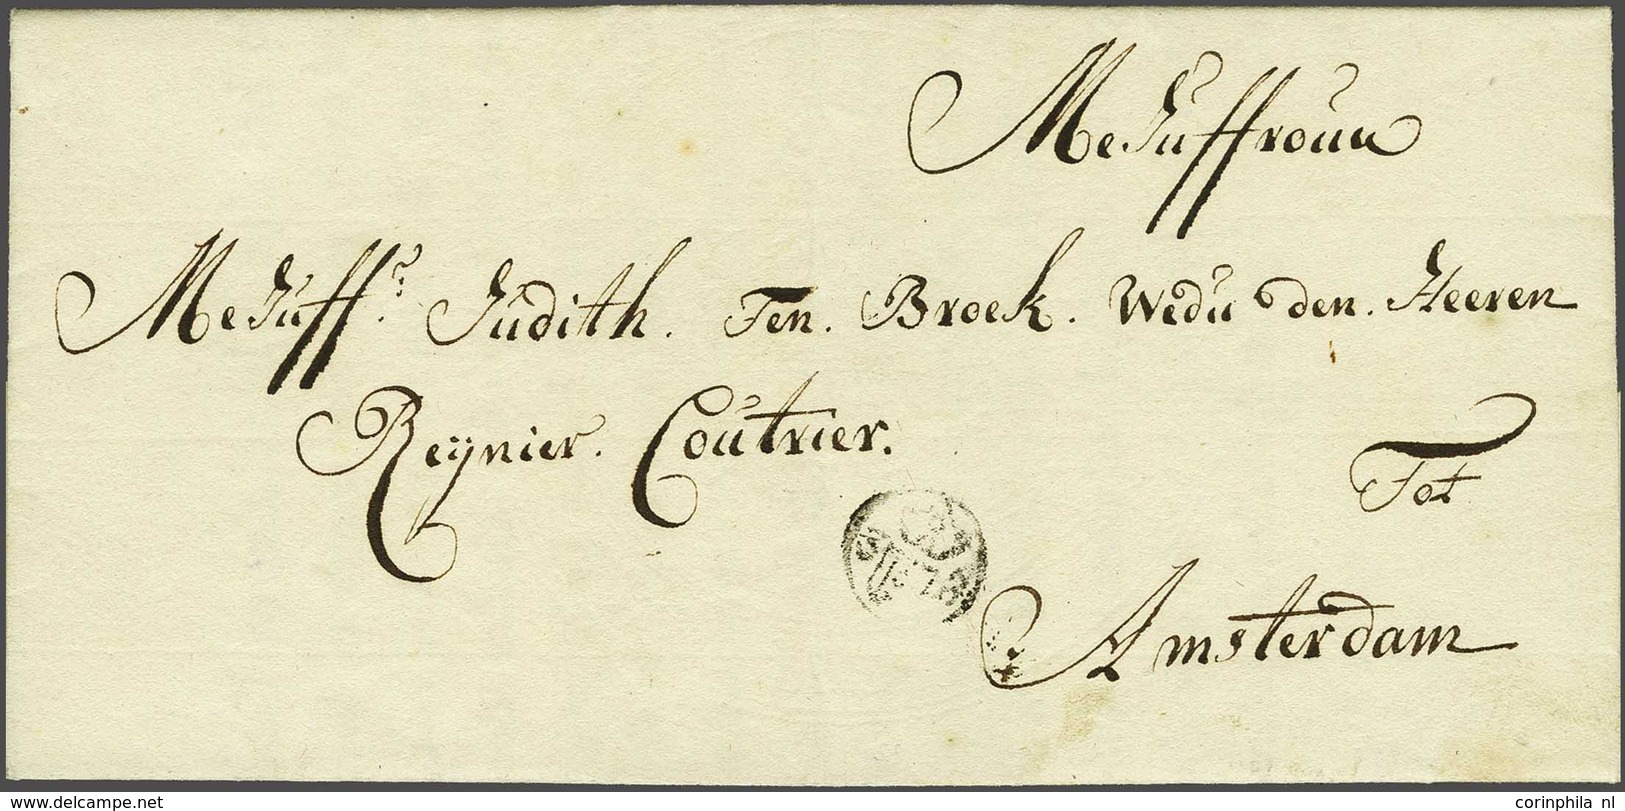 MeJuffrouw
MeJuffr. Judith. Ten. Broek. Wedu den. Heeren
Reynier. Coutrier.
Tot
Amsterdam
www.delcampe.net
corinphila nl